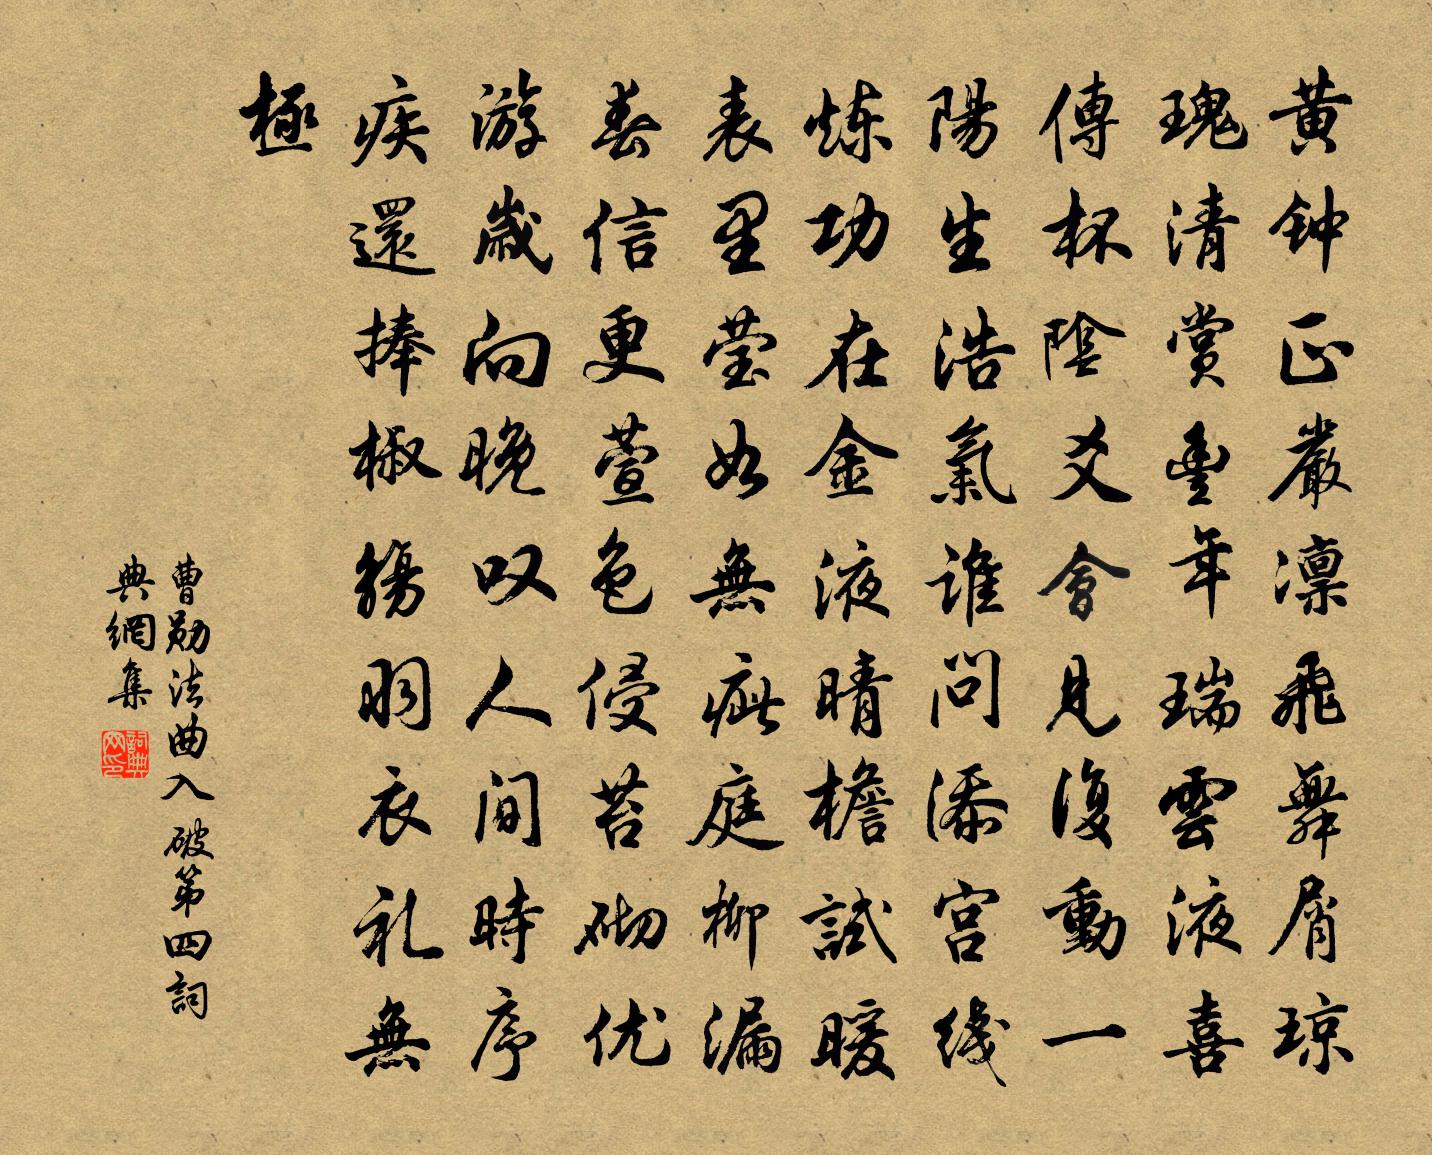 黄钟正嚴凛飛舞屑琼
瑰清賞豐年瑞雲液喜
傳杯陰爻會見復動一
陽生浩氣誰問添宫线
炼功在金液晴檐試暖
表里莹如無疵庭柳漏
春信更萱色侵苔砌优
游歲向晚叹人間時序
疾還捧椒觴羽衣礼無
極
曹勋法曲入破第四詞
典網集
詞典
网印